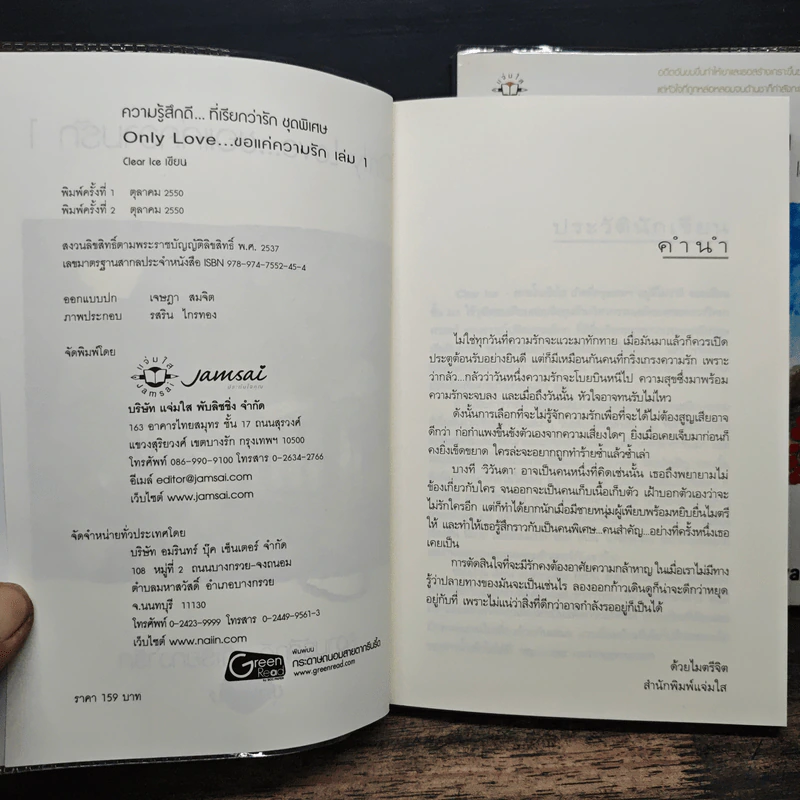 ความรู้สึกดี... ที่เรียกว่ารัก ชุดพิเศษ
Only Love...ขอแค่ความรัก เล่ม 1
Clear Ice เขียน
พิมพ์ครั้งที่ 1 ตุลาคม 2550
พิมพ์ครั้งที่ 2 ตุลาคม 2550
สงวนลิขสิทธิ์ตามพระราชบัญญัติลิขสิทธิ์ พ.ศ. 2537
เลขมาตรฐานสากลประจำหนังสือ ISBN 978-974-7552-45-4
ออกแบบปก เจษฎา สมจิต
ภาพประกอบ รสริน ไกรทอง
จัดพิมพ์โดย
แจ่มใส
JAMSAI
Jamsai
บริษัท แจ่มใส พับลิชชิ่ง จำกัด
163 อาคารไทยสมุทร ชั้น 17 ถนนสุรวงศ์
แขวงสุริยวงศ์ เขตบางรัก กรุงเทพฯ 10500
โทรศัพท์ 086-990-9100 โทรสาร 0-2634-2766
อีเมล์ editor@jamsai.com
เว็บไซต์ www.jamsai.com
จัดจำหน่ายทั่วประเทศโดย
บริษัท อมรินทร์ บุ๊ค เซ็นเตอร์ จำกัด
108 หมู่ที่ 2 ถนนบางกรวย-จงถนอม
ตำบลมหาสวัสดิ์ อำเภอบางกรวย
จ.นนทบุรี 11130
โทรศัพท์ 0-2423-9999 โทรสาร 0-2449-9561-3
เว็บไซต์ www.naiin.com
Green Read
พิมพ์บน
กระดาษถนอมสายตากรีนรี้ด
www.greenread.com
ราคา 159 บาท
คำนำ
ไม่ใช่ทุกวันที่ความรักจะแวะมาทักทาย เมื่อมันมาแล้วก็ควรเปิด
ประตูต้อนรับอย่างยินดี แต่ก็มีเหมือนกันคนที่กริ่งเกรงความรัก เพราะ
ว่ากลัว...กลัวว่าวันหนึ่งความรักจะโบยบินหนีไป ความสุขซึ่งมาพร้อม
ความรักจะจบลง และเมื่อถึงวันนั้น หัวใจอาจทนรับไม่ไหว
ดังนั้นการเลือกที่จะไม่รู้จักความรักเพื่อที่จะได้ไม่ต้องสูญเสียอาจ
ดีกว่า ก่อกำแพงขึ้นขังตัวเองจากความเสี่ยงใดๆ ยิ่งเมื่อเคยเจ็บมาก่อนก็
คงยิ่งเข็ดขยาด ใครล่ะจะอยากถูกทำร้ายซ้ำแล้วซ้ำเล่า
บางที 'วิวันดา' อาจเป็นคนหนึ่งที่คิดเช่นนั้น เธอถึงพยายามไม่
ข้องเกี่ยวกับใคร จนออกจะเป็นคนเก็บเนื้อเก็บตัว เฝ้าบอกตัวเองว่าจะ
ไม่รักใครอีก แต่ก็ทำได้ยากนักเมื่อมีชายหนุ่มผู้เพียบพร้อมหยิบยื่นไมตรี
ให้ และทำให้เธอรู้สึกราวกับเป็นคนพิเศษ...คนสำคัญ...อย่างที่ครั้งหนึ่งเธอ
เคยเป็น
การตัดสินใจที่จะมีรักคงต้องอาศัยความกล้าหาญ ในเมื่อเราไม่มีทาง
รู้ว่าปลายทางของมันจะเป็นเช่นไร ลองออกก้าวเดินดูก็น่าจะดีกว่าหยุด
อยู่กับที่ เพราะไม่แน่ว่าสิ่งที่ดีกว่าอาจกำลังรออยู่ก็เป็นได้
ด้วยไมตรีจิต
สำนักพิมพ์แจ่มใส